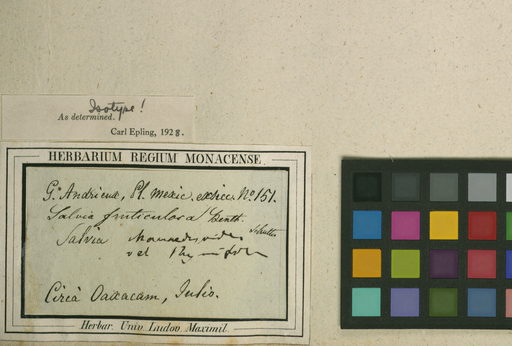 Isotype!
As determined.
Carl Epling, 1928.
HERBARIUM REGIUM MONACENSE
G. Andrieux, Pl. mexic. exsicc. No 151.
Salvia fruticulosa Benth.
Salvia
vel
Circà Oaxacam, Julio.
Herbar. Univ. Ludov. Maximil.